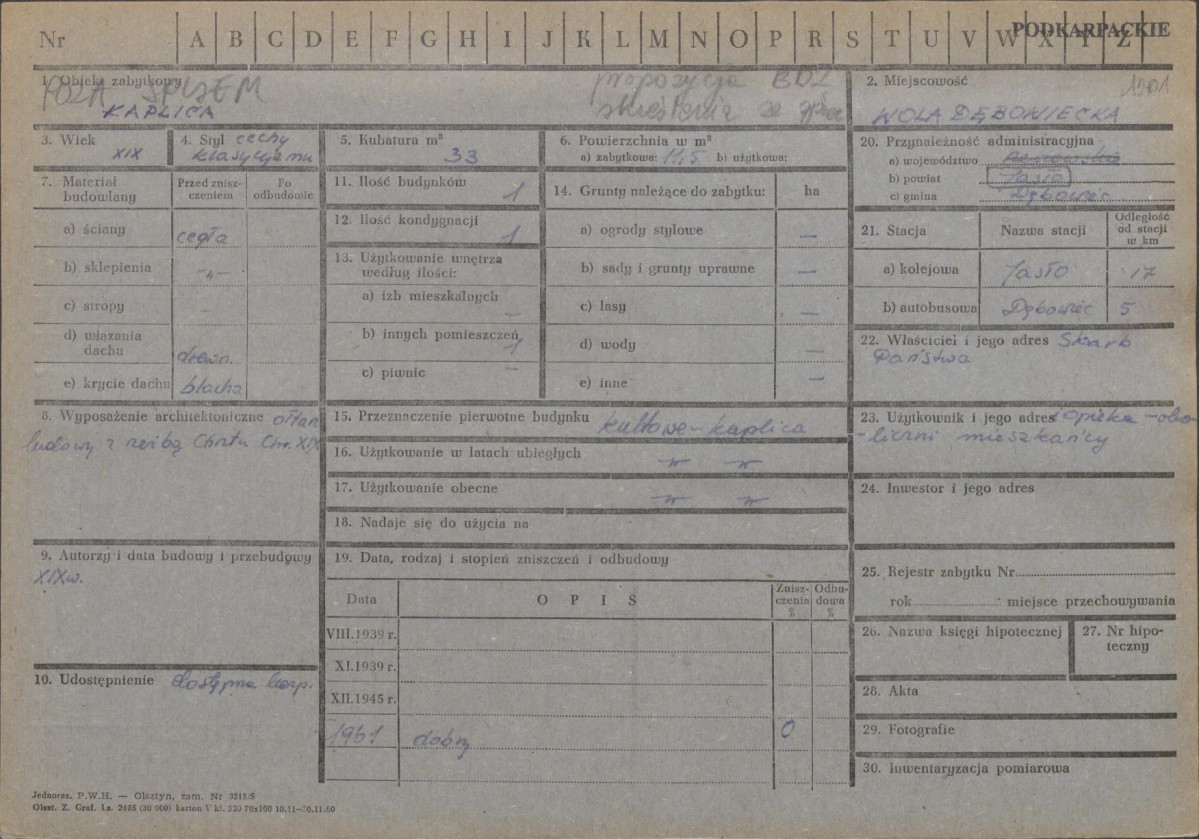 PODKARPACKIE
Nr A B C D E F G H I J K L M N O P R S T U V W X Y Z
1. Obiekt zabytkowy
POZA SPISEM
KAPLICA
propozycja BDZ
skreślenia ze
2. Miejscowość 1201
WOLA DĘBOWIECKA
3. Wiek
XIX
4. Styl cechy
klasycyzmu
5. Kubatura m³
33
6. Powierzchnia w m²
a) zabytkowa: 11,5 b) użytkowa:
7. Materiał budowlany
Przed zniszczeniem
Po odbudowie
a) ściany cegła
b) sklepienia -„-
c) stropy -
d) wiązania dachu drewn.
e) krycie dachu blacha
8. Wyposażenie architektoniczne ołtarz
budowy z rzeźbą Chrztu Chr. XIX
9. Autorzy i data budowy i przebudowy
XIXw.
10. Udostępnienie dostępna
11. Ilość budynków 1
12. Ilość kondygnacji 1
13. Użytkowanie wnętrza
według ilości:
a) izb mieszkalnych —
b) innych pomieszczeń 1
c) piwnic —
14. Grunty należące do zabytku: ha
a) ogrody stylowe —
b) sady i grunty uprawne —
c) lasy —
d) wody —
e) inne —
15. Przeznaczenie pierwotne budynku kultowe-kaplica
16. Użytkowanie w latach ubiegłych -„- -„-
17. Użytkowanie obecne -„- -„-
18. Nadaje się do użycia na
19. Data, rodzaj i stopień zniszczeń i odbudowy
Data OPIS Zniszczenia % Odbudowa %
VIII.1939 r.
XI.1939 r.
XII.1945 r.
1961 dobry 0
20. Przynależność administracyjna
a) województwo
b) powiat Jasło
c) gmina Dębowiec
21. Stacja Nazwa stacji Odległość od stacji w km
a) kolejowa Jasło 17
b) autobusowa Dębowiec 5
22. Właściciel i jego adres Skarb
Państwa
23. Użytkownik i jego adres opieka - oko-
-liczni mieszkańcy
24. Inwestor i jego adres
25. Rejestr zabytku Nr
rok miejsce przechowywania
26. Nazwa księgi hipotecznej
27. Nr hipoteczny
28. Akta
29. Fotografie
30. Inwentaryzacja pomiarowa
Jednoraz. P.W.H. — Olsztyn, zam. Nr 3215/S
Olszt. Z. Graf. Lz. 2485 (30 000) karton V kl. 220 70x100 10.11—30.11.60